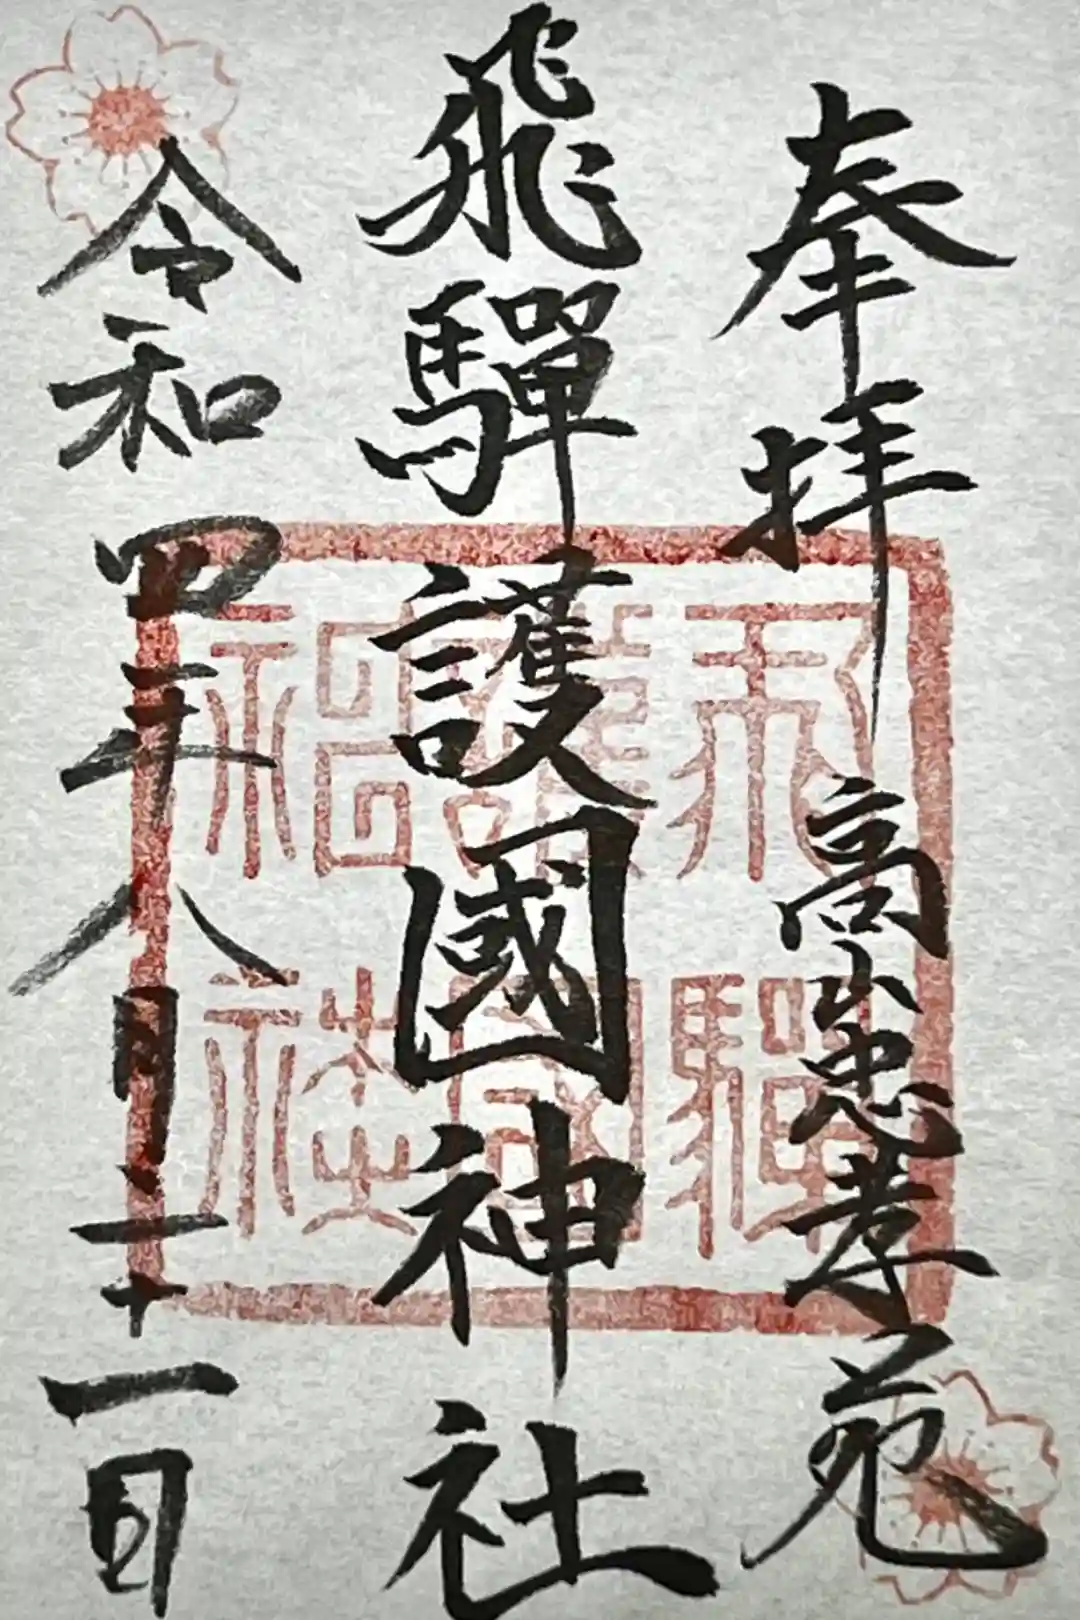 奉拝 高山忠孝苑
飛驒護國神社
令和四年八月二十一日
飛驒
護国
神社